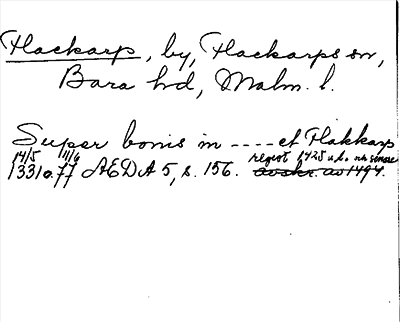 Flackarp, by, Flackarps sn,
Bara hd, Malm. l.
Super bonis in ---- et Flakkarp
14/5 11/6 regist 1425 u.d. nr senare
1331 o. 77 ÆDA 5, s. 156. avskr. av 1494.